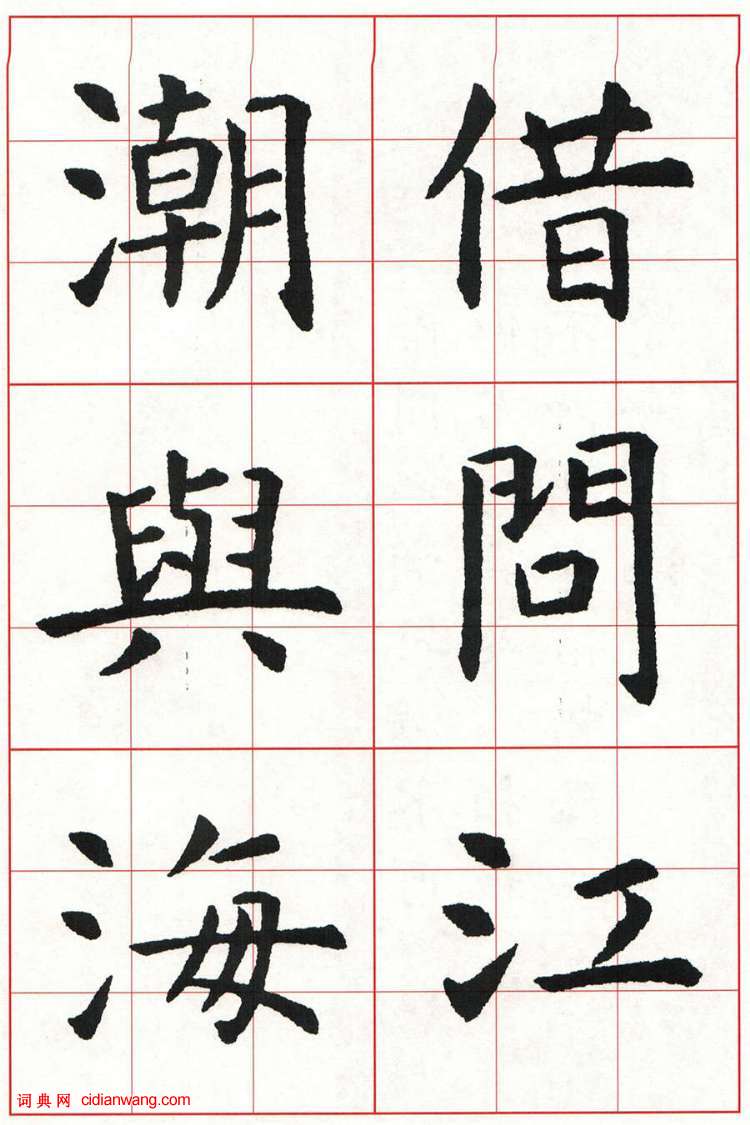 借問江
潮與海
词典网 cidianwang.com